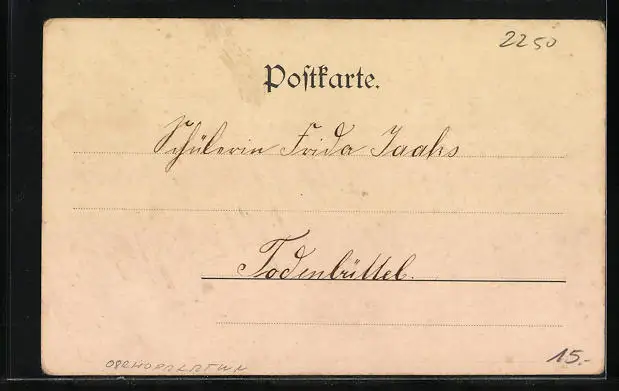 2250
Postkarte.
Schülerin Frida Jaaks
Todenbüttel.
15.-